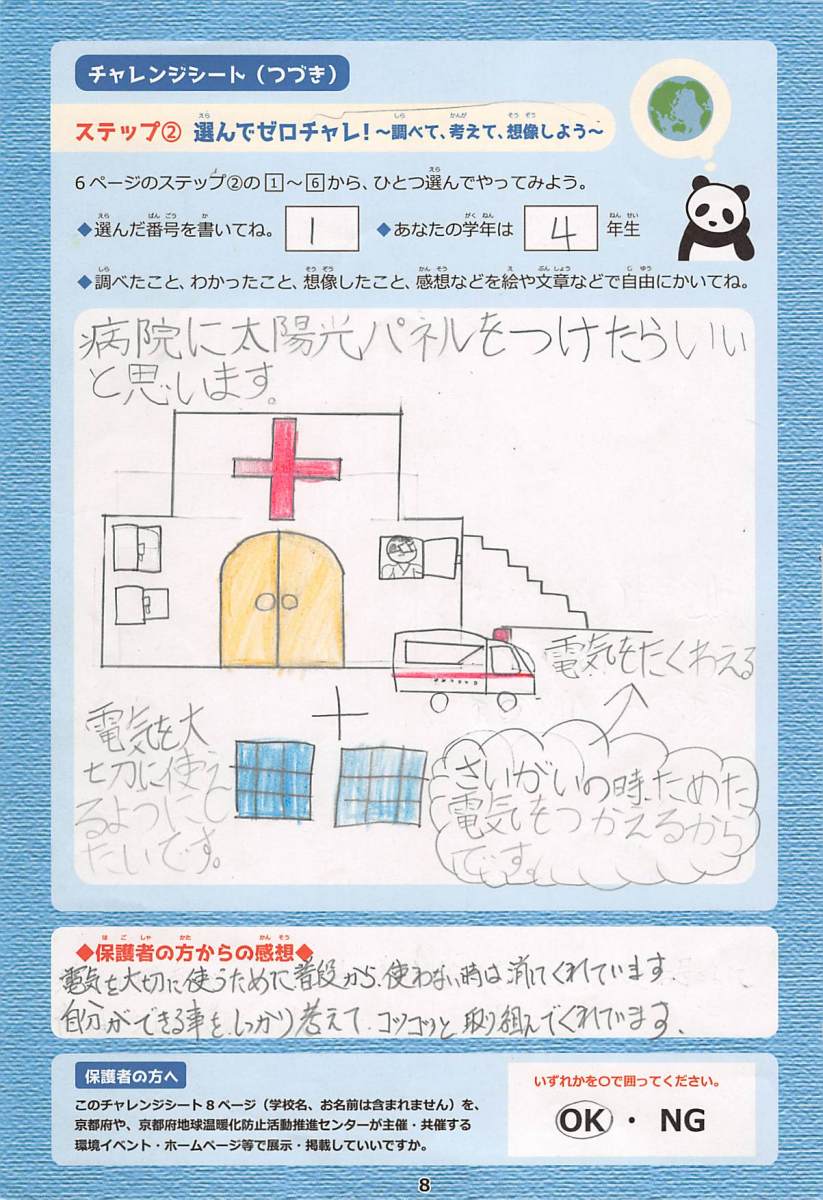 チャレンジシート（つづき）
ステップ② 選んでゼロチャレ！～調べて、考えて、想像しよう～
6ページのステップ②の1～6から、ひとつ選んでやってみよう。
◆選んだ番号を書いてね。 1 ◆あなたの学年は 4 年生
◆調べたこと、わかったこと、想像したこと、感想などを絵や文章などで自由にかいてね。
病院に太陽光パネルをつけたらいい
と思います。
電気をたくわえる
電気を大
切に使え
るようにし
たいです。
さいがいの時、ためた
電気をつかえるから
です。
◆保護者の方からの感想◆
電気を大切に使うために普段から、使わない時は消してくれています。
自分ができる事を、しっかり考えて、コツコツと取り組んでくれています。
保護者の方へ
このチャレンジシート8ページ（学校名、お名前は含まれません）を、
京都府や、京都府地球温暖化防止活動推進センターが主催・共催する
環境イベント・ホームページ等で展示・掲載していいですか。
いずれかを○で囲ってください。
OK ・ NG
8